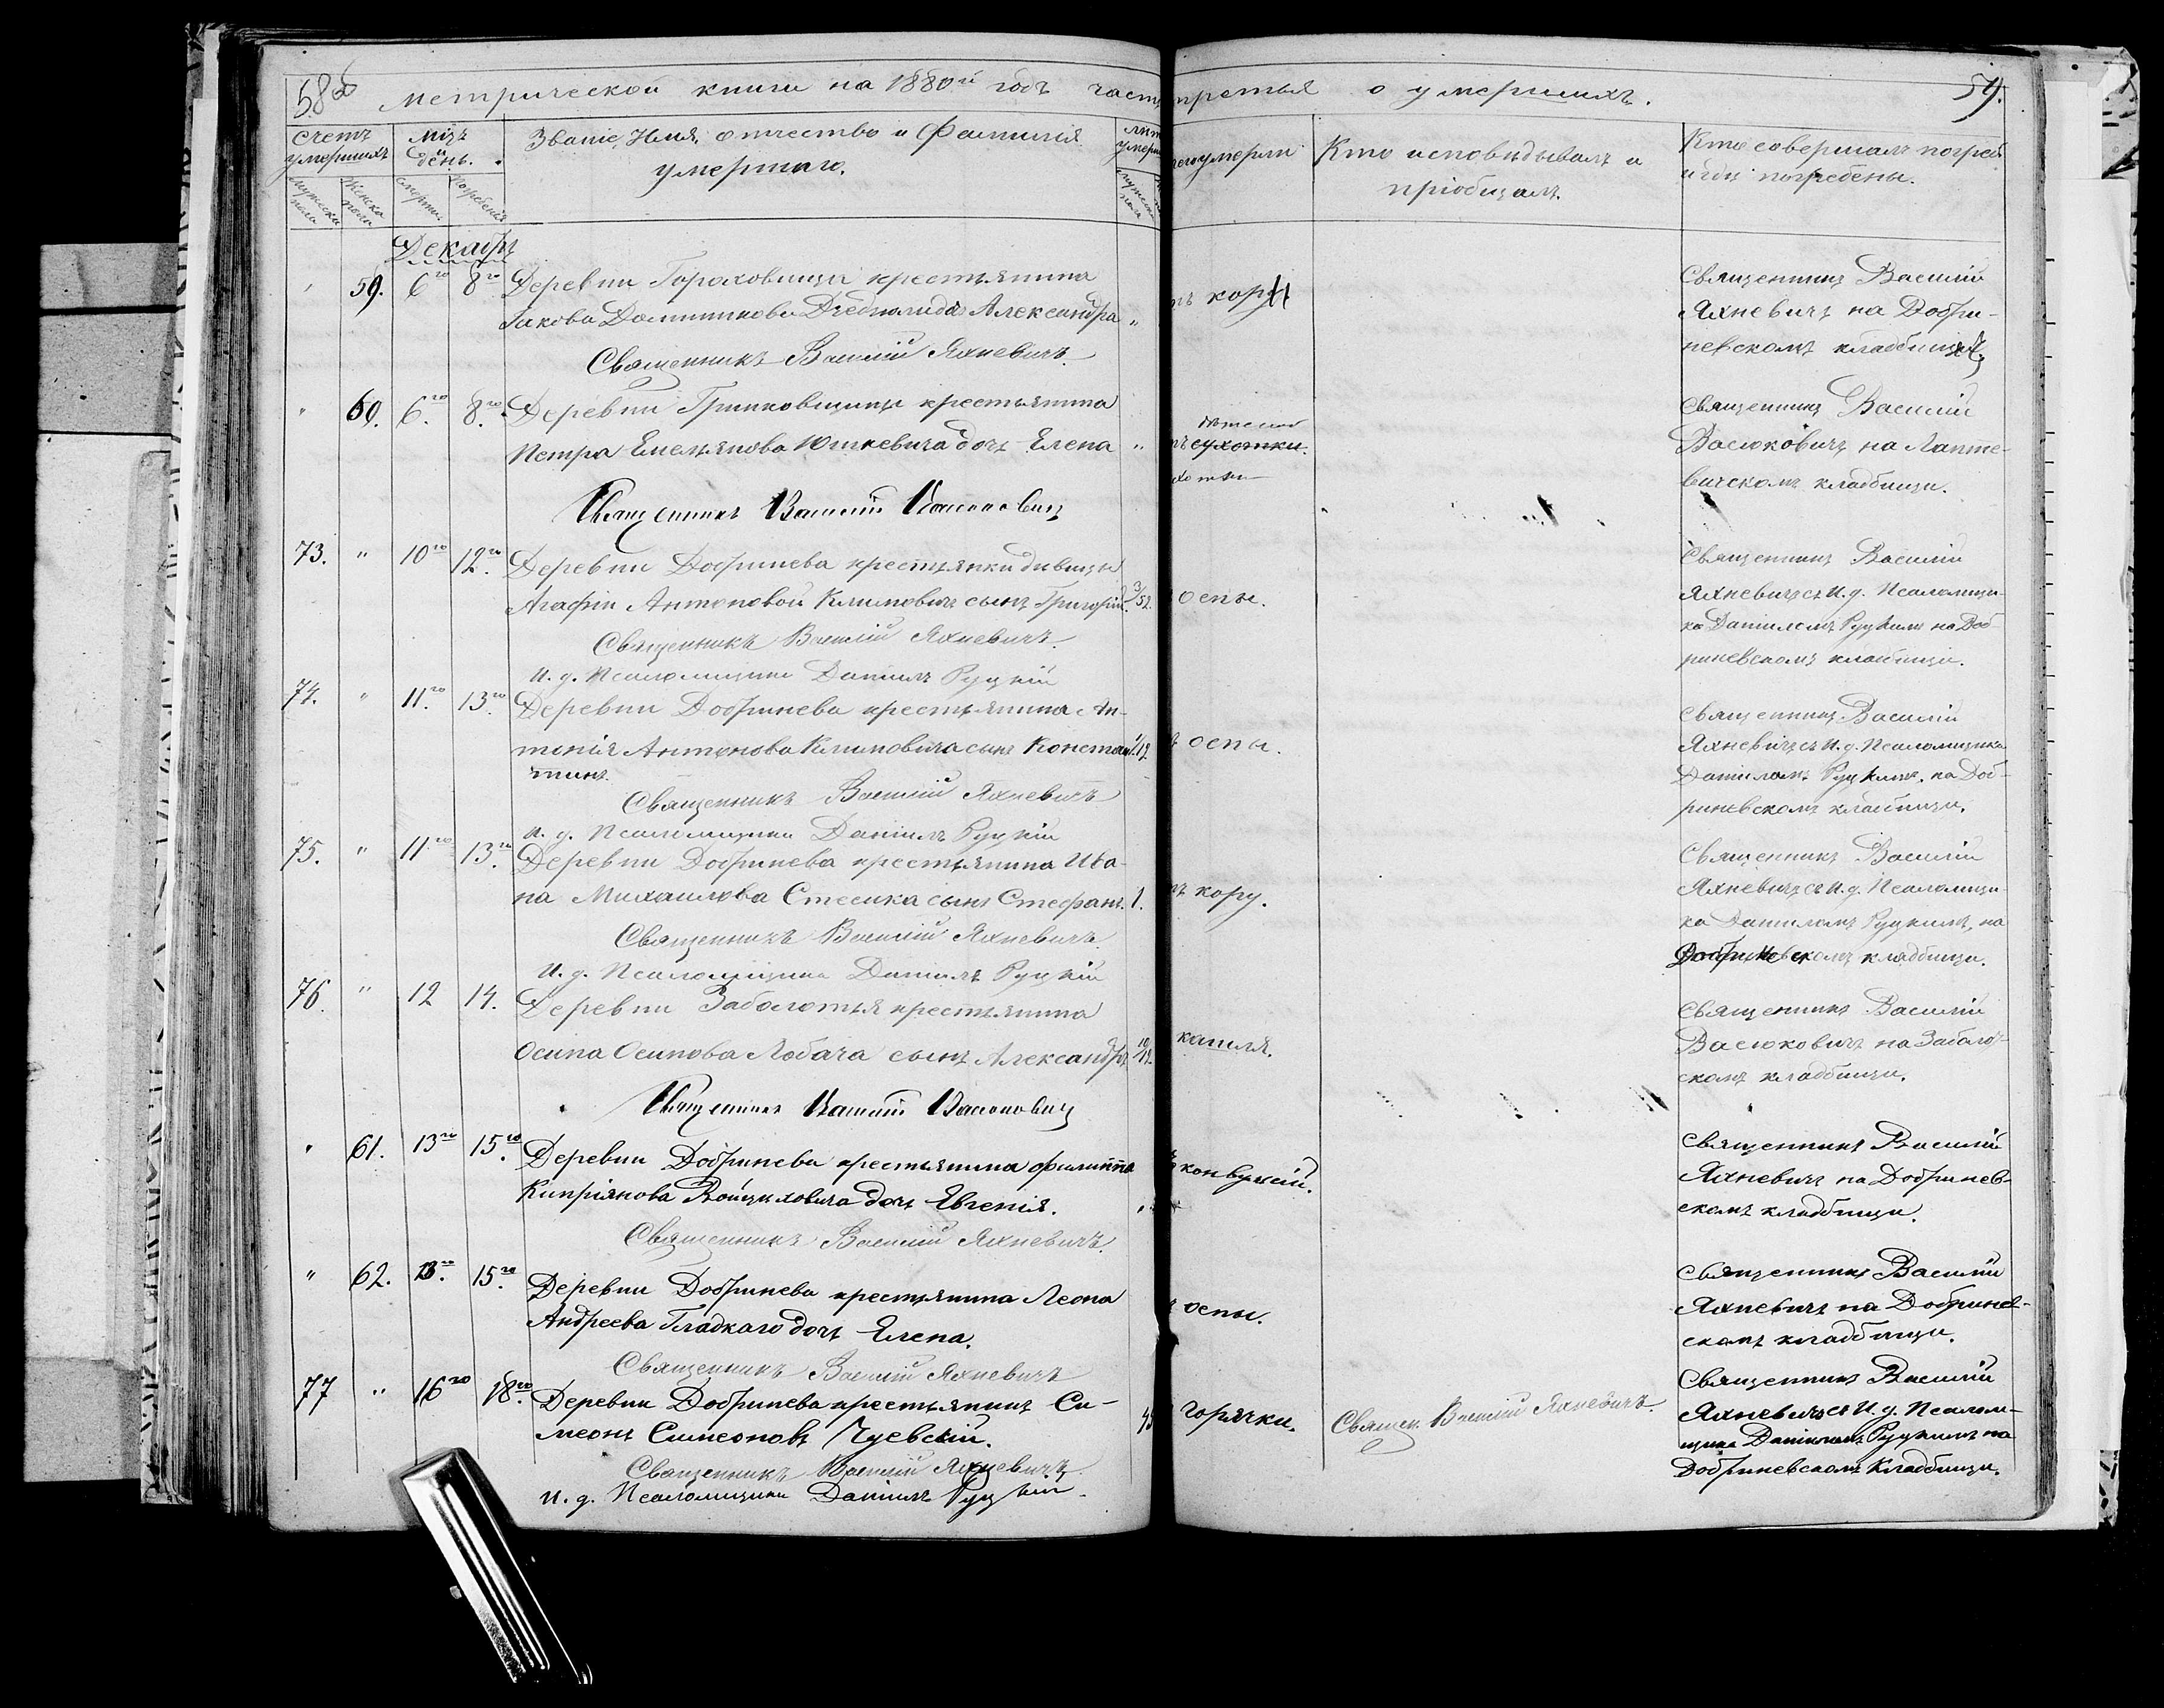 58об
Метрической книги на 1880й годъ часть третья о умершихъ.
59.
Счетъ умершихъ
Мцъ и день.
Званіе, Имя, отчество и Фамилія
умершаго.
Мужеска пола
Женска пола
Смерти.
Погребенія
чего умерли
Кто исповѣдывалъ и
пріобщалъ.
Кто совершалъ погреб
и гдѣ погребены.
Декабрь
" 59. 6го 8го Деревни Гороховищи крестьянина
Іакова Доминикова дочь Александра "
ъ кору
Священникъ Василій
Яхневичъ на Добри-
невскомъ кладбищѣ
Священникъ Василій Яхневичъ
" 60. 6го. 8го. Деревни Гринковщины крестьянина
Петра Емельянова Юшкевича дочь Елена "
Священникъ Василій
Васюковичъ на Лапте-
вичскомъ кладбищи.
Священникъ Василій Васюковичъ
73. " 10го 12го. Деревни Добринева крестьянки дѣвицы
Агафіи Антоновой Климовичъ сынъ Григорій. 3/52.
оспы.
Священникъ Василій
Яхневичъ съ И. д. Псаломщи-
ка Даніиломъ Руцкимъ на Доб-
риневскомъ кладбищи.
Священникъ Василій Яхневичъ.
И. д. Псаломщика Даніилъ Руцкій
74. " 11го. 13го. Деревни Добринева крестьянина Ан-
тонія Антонова Климовича сынъ Констан-
тинъ.
ъ оспы.
Священникъ Василій
Яхневичъ съ И. д. Псаломщика
Даніиломъ Руцкимъ, на Доб-
риневскомъ кладбищи.
Священникъ Василій Яхневичъ
И. д. Псаломщика Даніилъ Руцкій
75. " 11го 13го. Деревни Добринева крестьянина Ива-
на Михаилова Стесика сынъ Стефанъ. 1.
ъ кору.
Священникъ Василій
Яхневичъ съ И. д. Псаломщи-
ка Даніиломъ Руцкимъ, на
Добриневскомъ кладбищи.
Священникъ Василій Яхневичъ.
И. д. Псаломщика Даніилъ Руцкій
76. " 12 14. Деревни Заболотья крестьянина
Осипа Осипова Лобача сынъ Александръ 10/12.
кашля.
Священникъ Василій
Васюковичъ на Заболот-
скомъ кладбищи.
Священникъ Василій Васюковичъ
" 61. 13го 15го. Деревни Добринева крестьянина Филиппа
Кипріянова Войцеховича дочь Евгенія. "
конвульсій.
Священникъ Василій
Яхневичъ на Добринев-
скомъ кладбищи.
Священникъ Василій Яхневичъ.
" 62. 13го. 15го. Деревни Добринева крестьянина Леона
Андреева Гладкаго дочь Елена.
ъ оспы.
Священникъ Василій
Яхневичъ на Добринев-
скомъ кладбищи.
Священникъ Василій Яхневичъ
77 " 16го 18го. Деревни Добринева крестьянинъ Си-
меонъ Симеоновъ Чуевскій.
горячки.
Священ. Василій Яхневичъ.
Священникъ Василій
Яхневичъ съ И. д. Псалом-
щика Даніиломъ Руцкимъ на
Добриневскомъ кладбищи.
Священникъ Василій Яхневичъ.
И. д. Псаломщика Даніилъ Руцкій